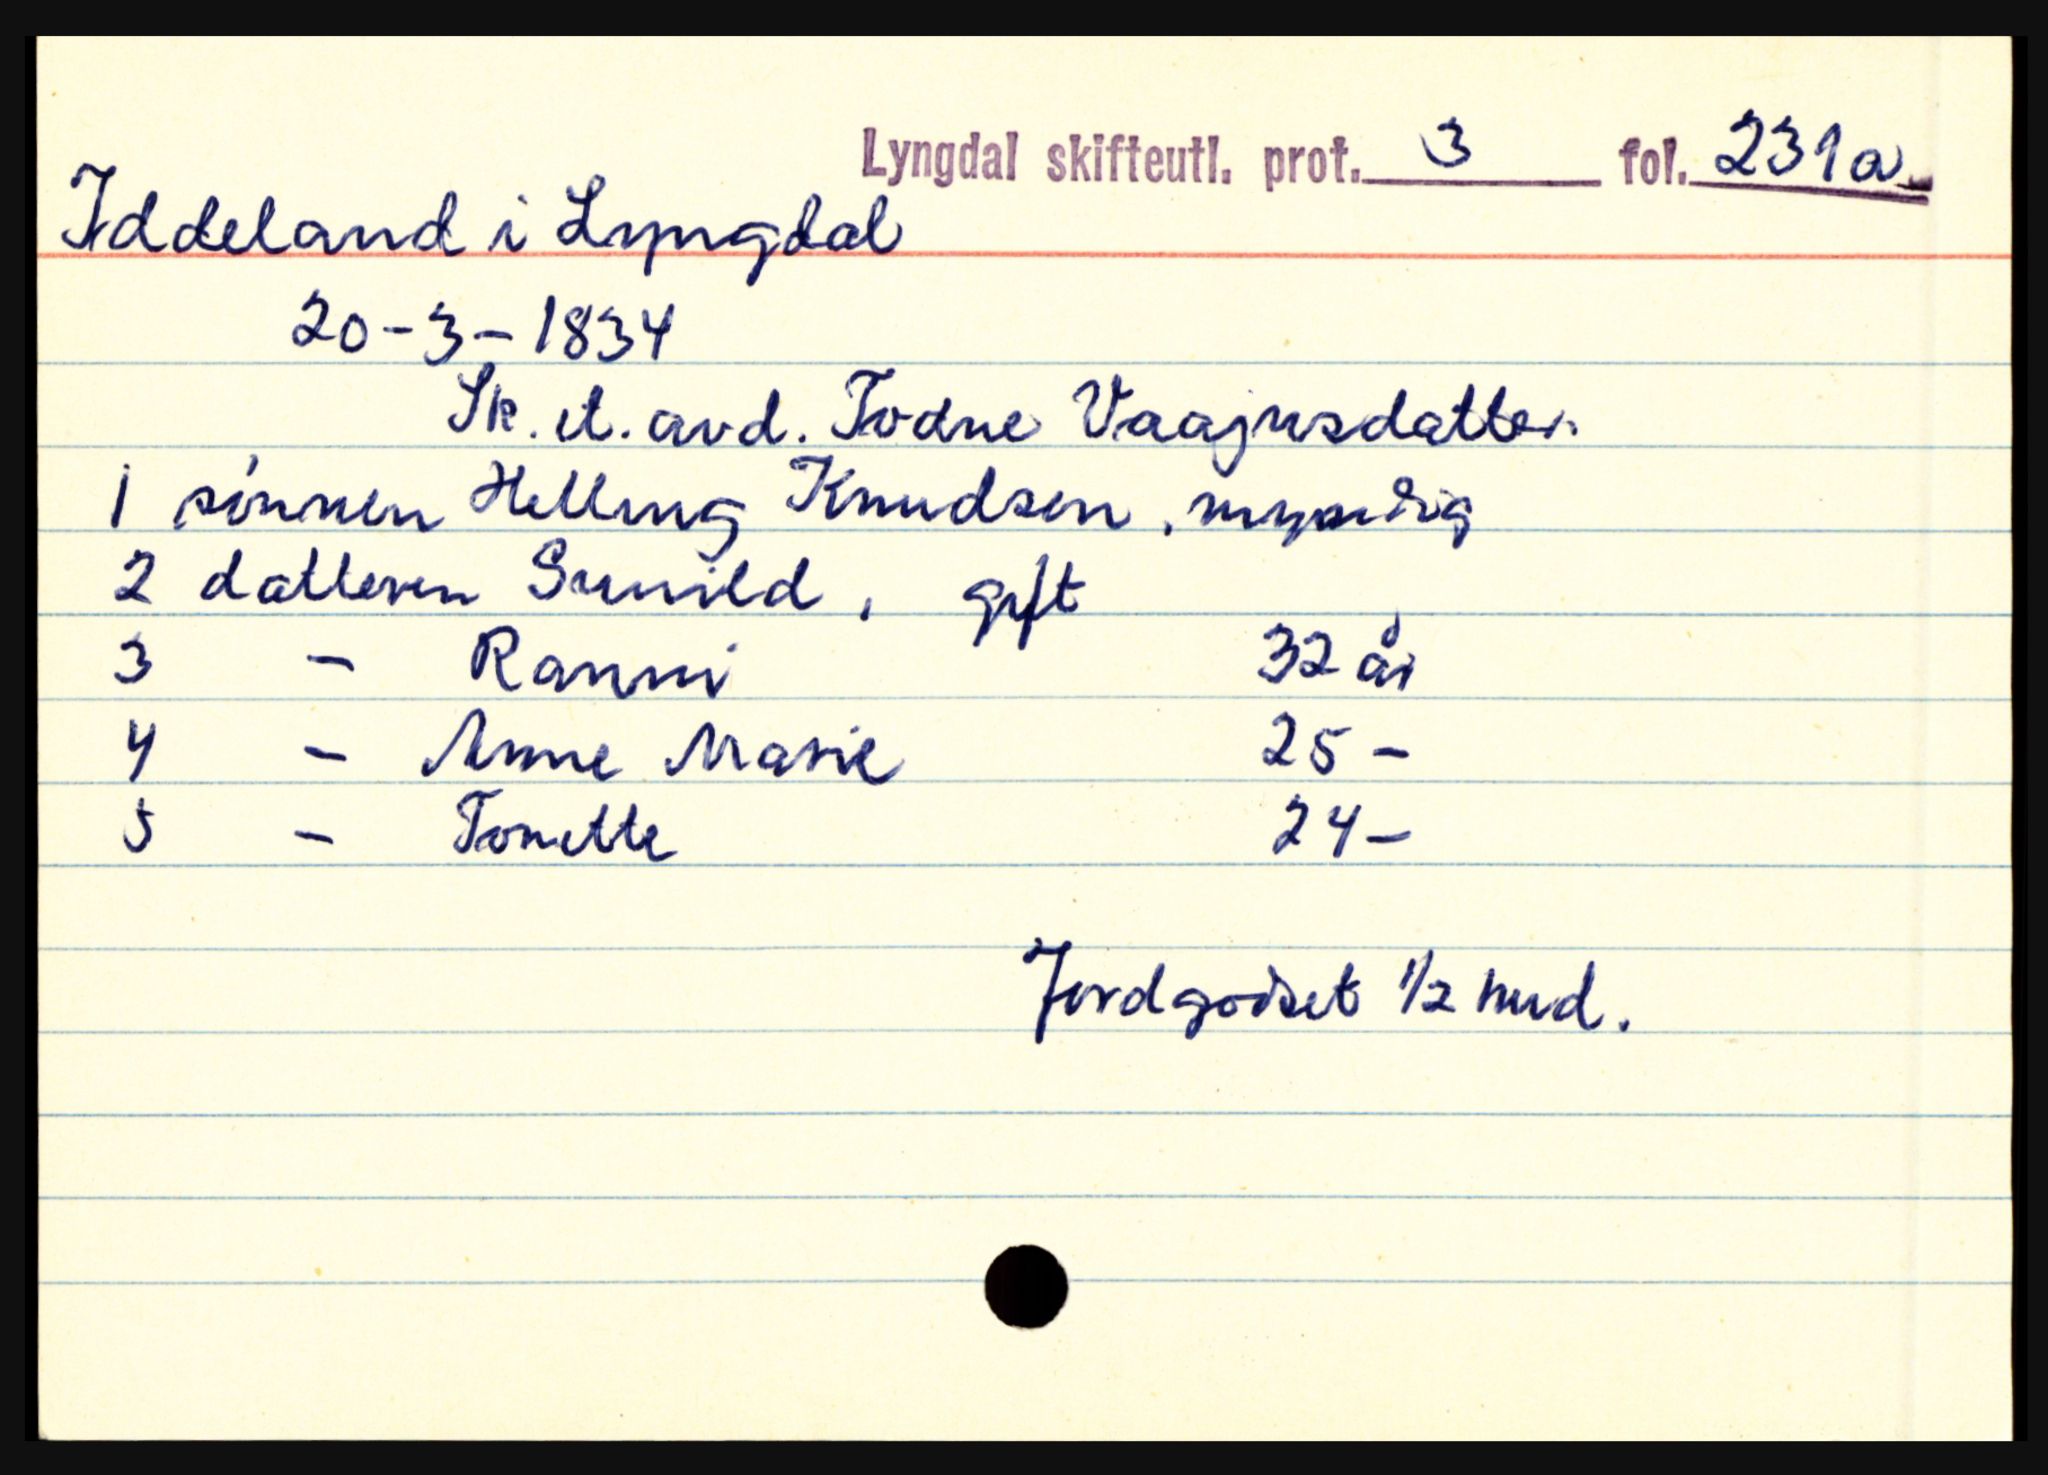 Lyngdal skifteutl. prot. 3 fol. 231a
Iddeland i Lyngdal
20-3-1834
Sk. et. avd. Todne Vaajusdatter.
1 sønnen Helling Knudsen, myndig
2 datteren Gunild, gift
3 - Ranni 32 år
4 - Anne Marie 25 -
5 - Tonette 24 -
Jordgodset 1/2 hud.